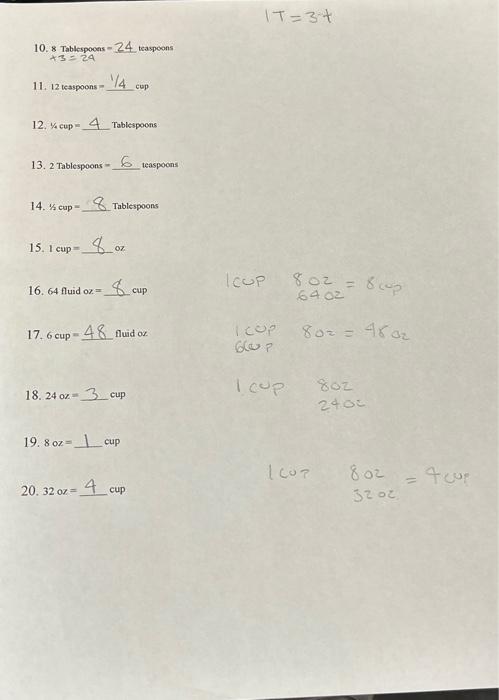 1T = 3t
10. 8 Tablespoons = 24 teaspoons
×3 = 24
11. 12 teaspoons = 1/4 cup
12. ¼ cup = 4 Tablespoons
13. 2 Tablespoons = 6 teaspoons
14. ½ cup = 8 Tablespoons
15. 1 cup = 8 oz
16. 64 fluid oz = 8 cup
1 cup 8 oz = 8 cup
64 oz
17. 6 cup = 48 fluid oz
1 cup 8 oz = 48 oz
6 cup
18. 24 oz = 3 cup
1 cup 8 oz
24 oz
19. 8 oz = 1 cup
20. 32 oz = 4 cup
1 cup 8 oz = 4 cup
32 oz